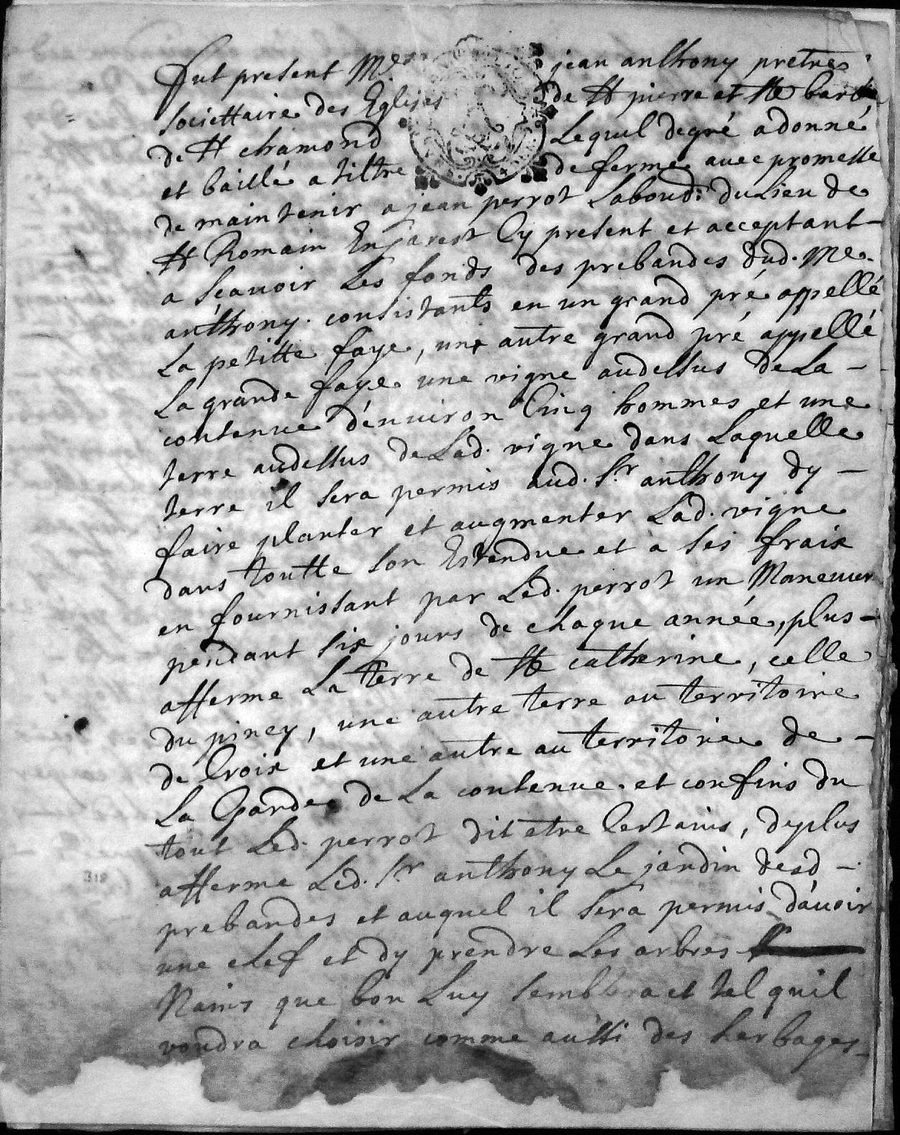 fut present Me jean anthony pretre
societtaire des Eglises de St pierre et Ste barbe
de St chamond Lequil degré a donné
et baillé a tiltre de ferme avec promesse
de maintenir a jean perrot Labour du Lieu de
St Romain En jarest Cy present et acceptant
a Scavoir Les fonds des prebandes dud. Me
anthony. consistants en un grand pré appellé
La petitte faye, une autre grand pré appellé
La grande faye, une vigne audessus de La
contenue d'environ Cinq hommes et une
terre audessus de Lad. vigne dans Laquelle
terre il sera permis aud. Sr anthony dy
faire planter et augmenter Lad. vigne
dans toutte son Estendue et a ses fraix
en fournissant par Led. perrot un Maneuvre
pendant six jours de chaque année, plus
afferme La terre de Ste catherine, celle
du piney, une autre terre au territoire
de Croix et une autre au territoire de
La Garde de La contenue et confins du
tout Led. perrot dit etre Certains, deplus
afferme Led. Sr anthony Le jardin desd
prebandes et auquel il sera permis d'avoir
une clef et dy prendre Les arbres
Nains que bon Luy semblera et tel quil
voudra choisir comme aussi des herbages